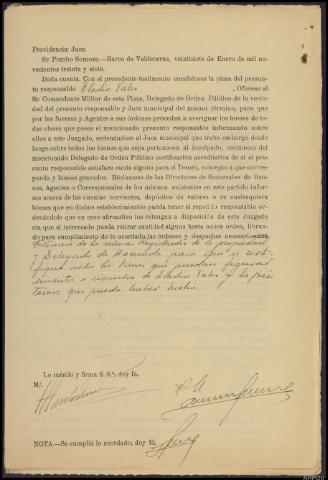 Providencia: Juez.
Sr Pombo Somoza.—Barco de Valdeorras, veintisiete de Enero de mil no-
vecientos treinta y siete.
Dada cuenta. Con el precedente testimonio encabécese la pieza del presun-
to responsable Eladio Vales. Ofíciese al
Sr. Comandante Militar de esta Plaza, Delegado de Orden Público de la vecin-
dad del presunto responsable y Juez municipal del mismo término, para que
por las fuerzas y Agentes a sus órdenes procedan a averiguar los bienes de to-
das clases que posee el mencionado presunto responsable informando sobre
ellos a este Juzgado, ordenándose al Juez municipal que trabe embargo desde
luego sobre todos los bienes que sepa pertenezcan al inculpado, recábese del
mencionado Delegado de Orden Público certificación acreditativa de si el pre-
sunto responsable satisface cuota alguna para el Tesoro, concepto a que corres-
ponda y bienes gravados. Rédactense de los Directores de Sucursales de Ban-
cos, Agentes o Corresponsales de los mismos, existentes en este partido infor-
me acerca de las cuentas corrientes, depósitos de valores o de cualesquiera
bienes que en dichos establecimientos pueda tener el repetido responsable or-
denándole que en caso afirmativo los retengan a disposición de este Juzgado
sin que el interesado pueda retirar cantidad alguna hasta nueva orden, librán-
do para cumplimiento de lo acordado, las órdenes y despachos necesarios
de la propiedad
y Delegado de Hacienda para que
bienes que puedan figurar
a nombre de Eladio Vales y
que pueda haber hecho.
Lo mandó y firma S. S.ª; doy fé.
M/
NOTA.—Se cumplió lo acordado; doy fé.